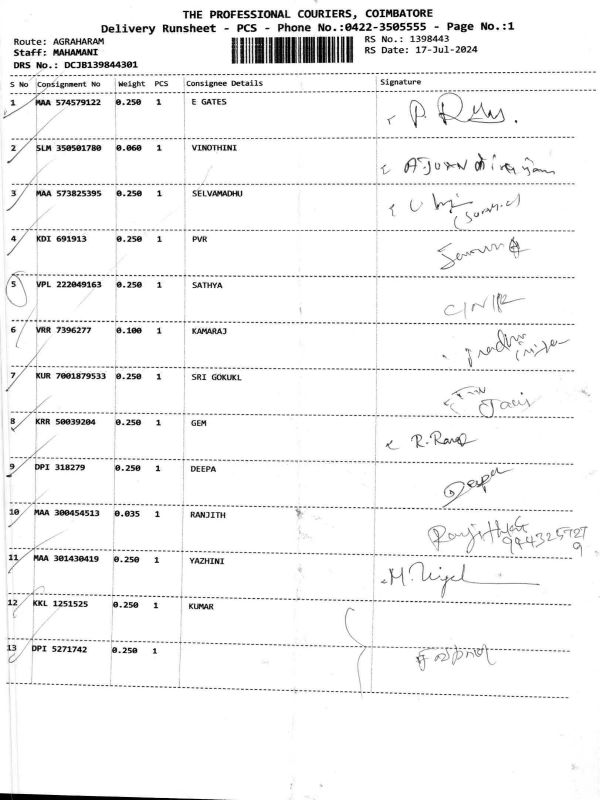 THE PROFESSIONAL COURIERS, COIMBATORE
Delivery Runsheet - PCS - Phone No.:0422-3505555 - Page No.:1
Route: AGRAHARAM RS No.: 1398443
Staff: MAHAMANI RS Date: 17-Jul-2024
DRS No.: DCJB139844301
S No Consignment No Weight PCS Consignee Details Signature
1 MAA 574579122 0.250 1 E GATES
2 SLM 350501780 0.060 1 VINOTHINI
3 MAA 573825395 0.250 1 SELVAMADHU
4 KDI 691913 0.250 1 PVR
5 VPL 222049163 0.250 1 SATHYA
6 VRR 7396277 0.100 1 KAMARAJ
7 KUR 7001879533 0.250 1 SRI GOKUKL
8 KRR 50039204 0.250 1 GEM
9 DPI 318279 0.250 1 DEEPA Deepa
10 MAA 300454513 0.035 1 RANJITH
11 MAA 301430419 0.250 1 YAZHINI
12 KKL 1251525 0.250 1 KUMAR
13 DPI 5271742 0.250 1